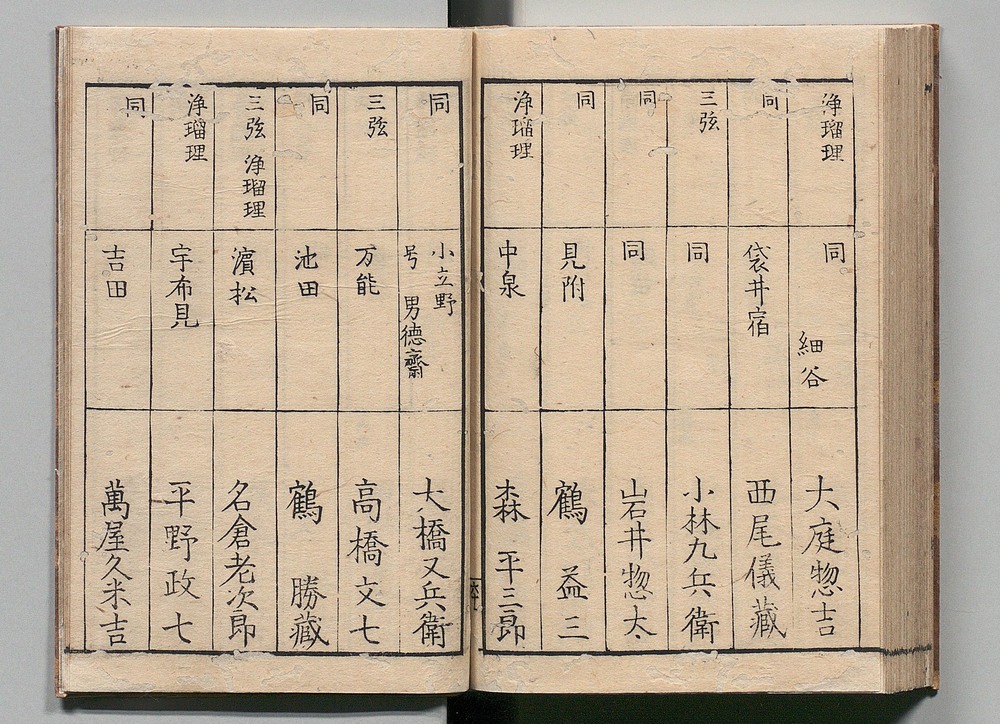 浄瑠理 同 細谷 大庭惣吉
同 袋井宿 西尾儀藏
三弦 同 小林九兵衛
同 同 岩井惣太
同 見附 鶴益三
浄瑠理 中泉 森平三郎
同 小立野 号 男徳齋 大橋又兵衛
三弦 万能 高橋文七
同 池田 鶴勝藏
三弦 浄瑠理 濵松 名倉老次郎
浄瑠理 宇布見 平野政七
同 吉田 萬屋久米吉